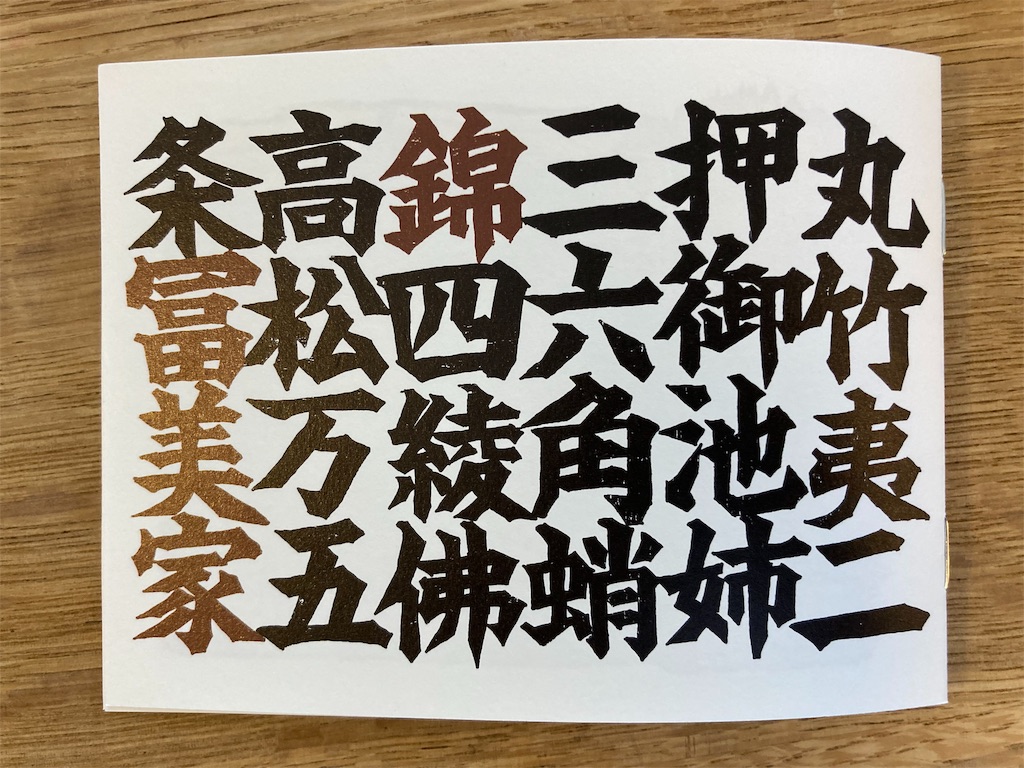 丸竹夷二
押御池姉
三六角蛸
錦四綾佛
高松万五
条冨美家